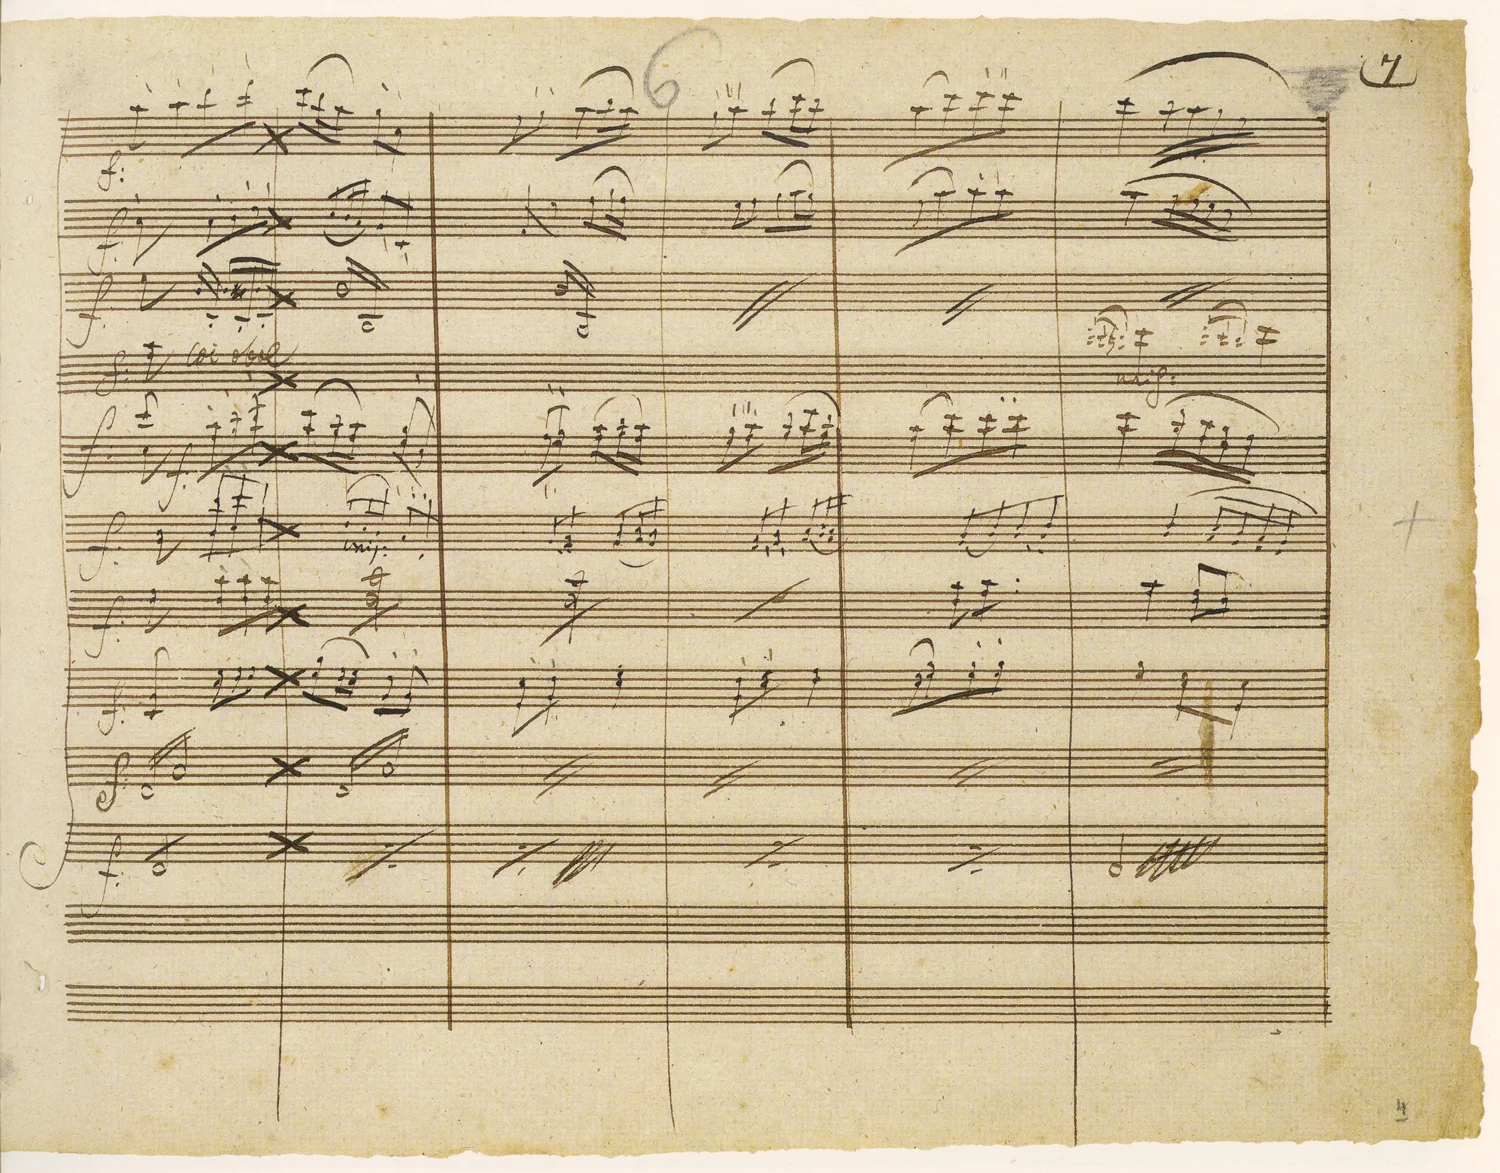 6
7
f:
f:
f.
f: coi oboe
unis:
f. f.
f:
unis:
f.
f.
f.
f.
4